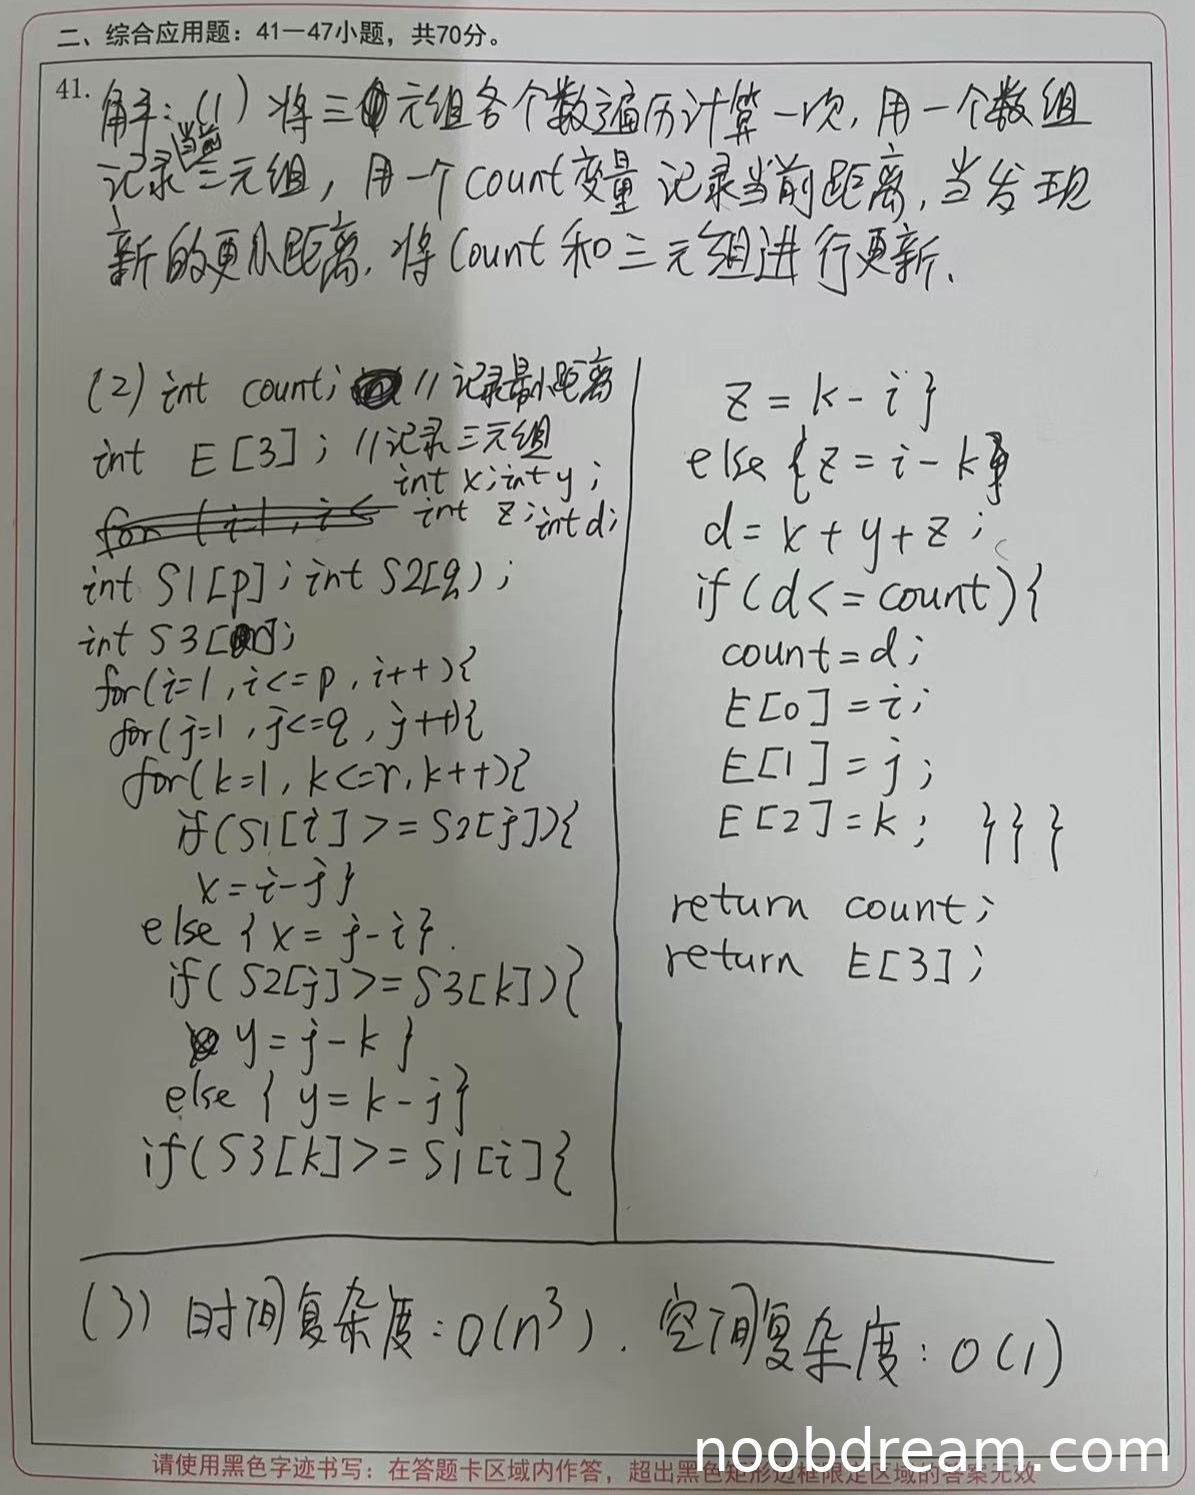 二、综合应用题：41—47小题，共70分。
41. 解:(1) 将三元组各个数遍历计算一次,用一个数组
记录当前三元组,用一个count变量记录当前距离,当发现
新的更小距离,将count和三元组进行更新.
(2) int count; //记录最小距离
int E[3]; //记录三元组
int x;int y;
for (i=1, i<
int z;int d;
int S1[p]; int S2[q);
int S3[];
for(i=1,i<=p,i++){
for(j=1,j<=q,j++){
for(k=1,k<=r,k++){
if(S1[i]>=S2[j]){
x=i-j}
else {x=j-i}.
if(S2[j]>=S3[k]){
y=j-k}
else {y=k-j}
if(S3[k]>=S1[i]{
z=k-i}
else {z=i-k}
d=x+y+z;
if(d<=count){
count=d;
E[0]=i;
E[1]=j;
E[2]=k; }}}
return count;
return E[3];
(3) 时间复杂度:O(n³). 空间复杂度:O(1)
请使用黑色字迹书写：在答题卡区域内作答，超出黑色矩形边框限定区域的答案无效
noobdream.com